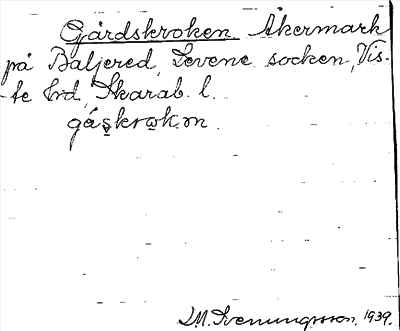 Gårdskroken Åkermark
på Baljered, Levene socken, Vis-
te hrd, Skarab. l.
gås̬krωk.ɷn.
J.M. Svenungsson. 1939.